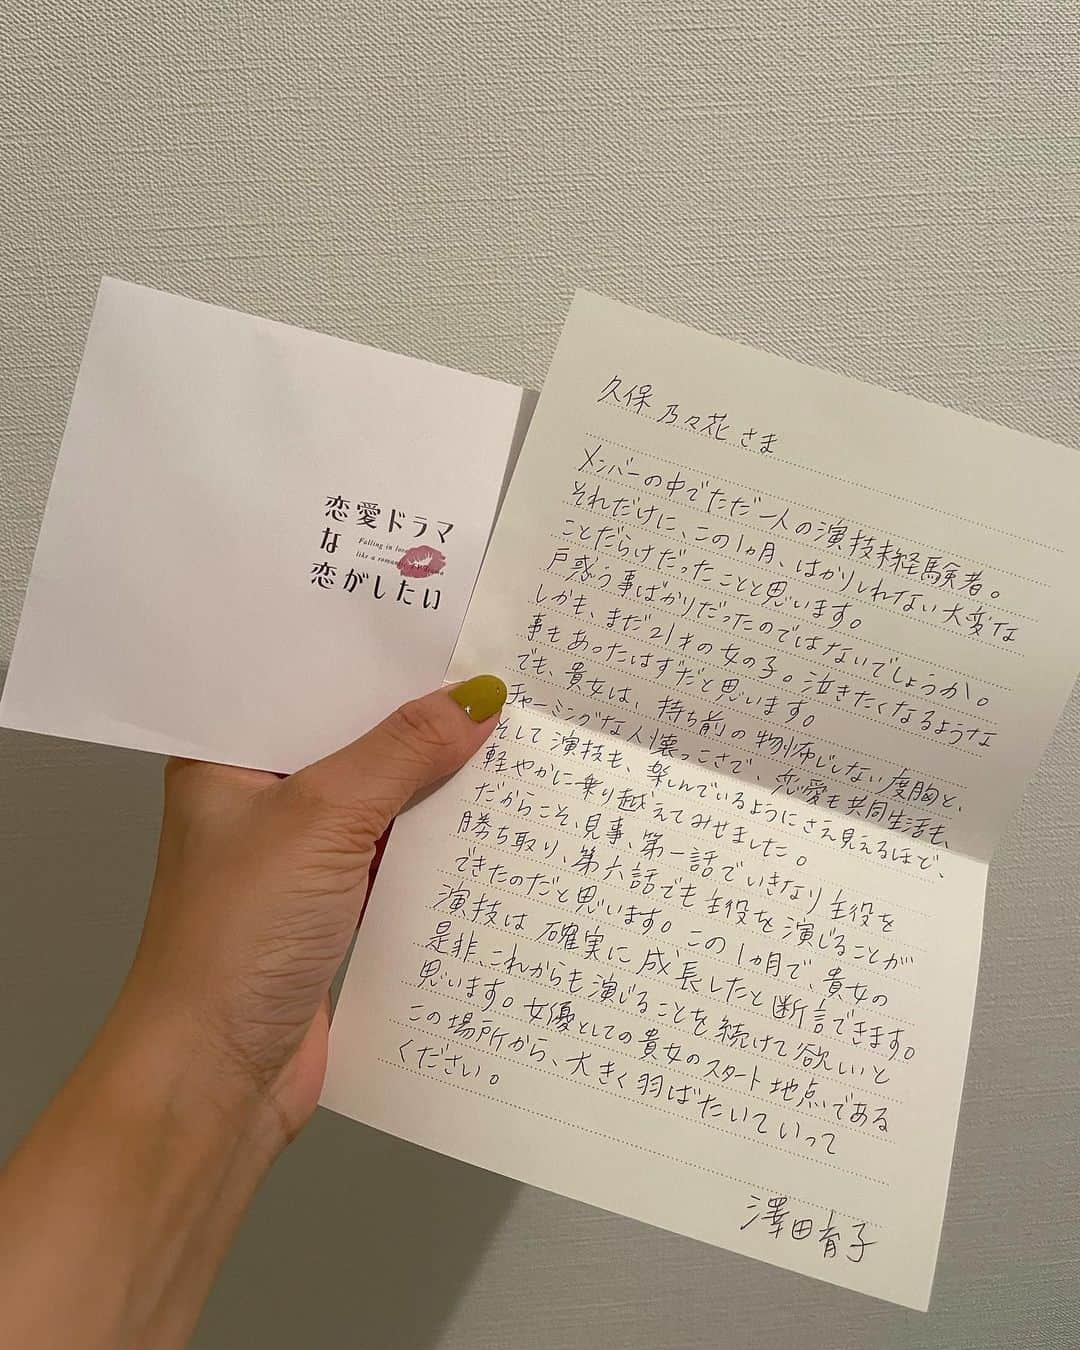 恋愛ドラマ
な
Falling in love
like a romantic drama
恋がしたい
久保 乃々花 さま
メンバーの中でただ一人の演技未経験者。
それだけに、この1ヵ月、はかりしれない大変な
ことだらけだったことと思います。
戸惑う事ばかりだったのではないでしょうか。
しかも、まだ21才の女の子。泣きたくなるような
事もあったはずだと思います。
でも、貴女は、持ち前の物怖じしない度胸と、
チャーミングな人懐っこさで、恋愛も共同生活も、
そして演技も、楽しんでいるようにさえ見えるほど、
軽やかに乗り越えてみせました。
だからこそ、見事、第一話でいきなり主役を
勝ち取り、第六話でも主役を演じることが
できたのだと思います。この1ヵ月で、貴女の
演技は確実に成長したと断言できます。
是非、これからも演じることを続けて欲しいと
思います。女優としての貴女のスタート地点である
この場所から、大きく羽ばたいていって
ください。
澤田育子